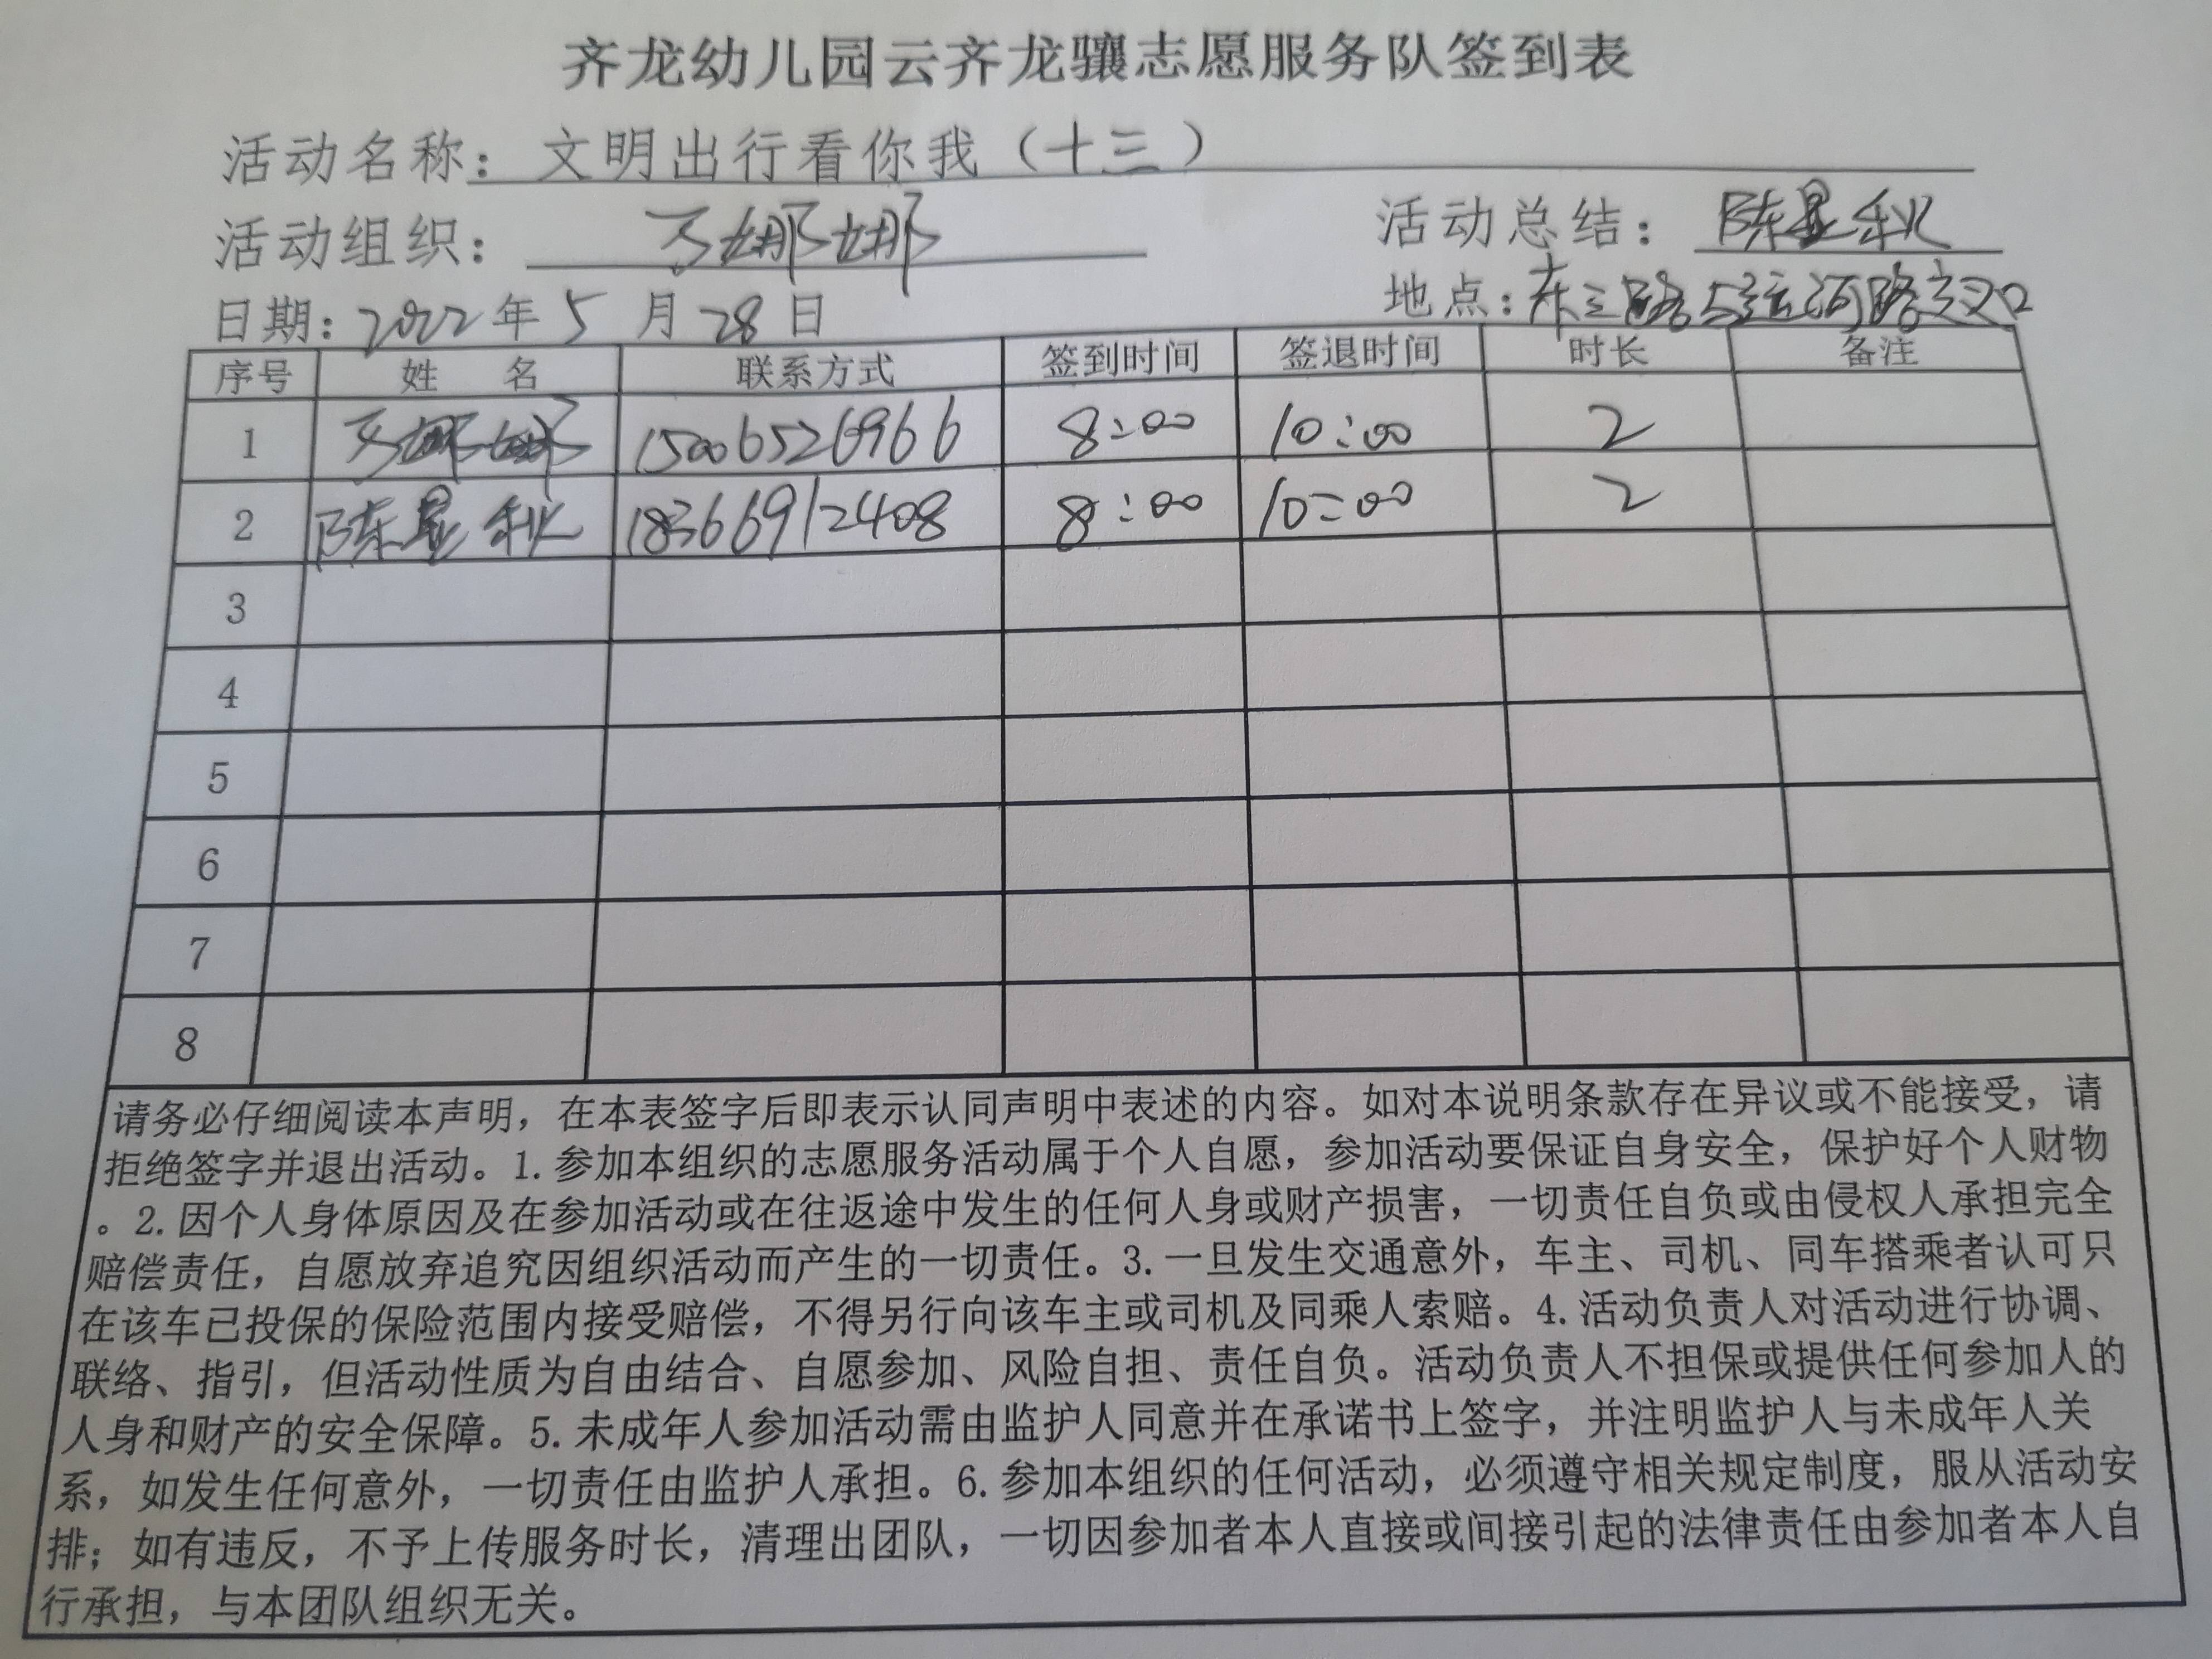 齐龙幼儿园云齐龙骧志愿服务队签到表
活动名称：文明出行看你我（十三）
活动组织：娜娜
活动总结：陈显秋
日期：2022年5月28日
地点：东三路与运河路交叉口
序号 姓 名 联系方式 签到时间 签退时间 时长 备注
1 娜娜 15006526966 8:00 10:00 2
2 陈显秋 18366912408 8:00 10:00 2
3
4
5
6
7
8
请务必仔细阅读本声明，在本表签字后即表示认同声明中表述的内容。如对本说明条款存在异议或不能接受，请
拒绝签字并退出活动。1.参加本组织的志愿服务活动属于个人自愿，参加活动要保证自身安全，保护好个人财物
。2.因个人身体原因及在参加活动或在往返途中发生的任何人身或财产损害，一切责任自负或由侵权人承担完全
赔偿责任，自愿放弃追究因组织活动而产生的一切责任。3.一旦发生交通意外，车主、司机、同车搭乘者认可只
在该车已投保的保险范围内接受赔偿，不得另行向该车主或司机及同乘人索赔。4.活动负责人对活动进行协调、
联络、指引，但活动性质为自由结合、自愿参加、风险自担、责任自负。活动负责人不担保或提供任何参加人的
人身和财产的安全保障。5.未成年人参加活动需由监护人同意并在承诺书上签字，并注明监护人与未成年人关
系，如发生任何意外，一切责任由监护人承担。6.参加本组织的任何活动，必须遵守相关规定制度，服从活动安
排；如有违反，不予上传服务时长，清理出团队，一切因参加者本人直接或间接引起的法律责任由参加者本人自
行承担，与本团队组织无关。